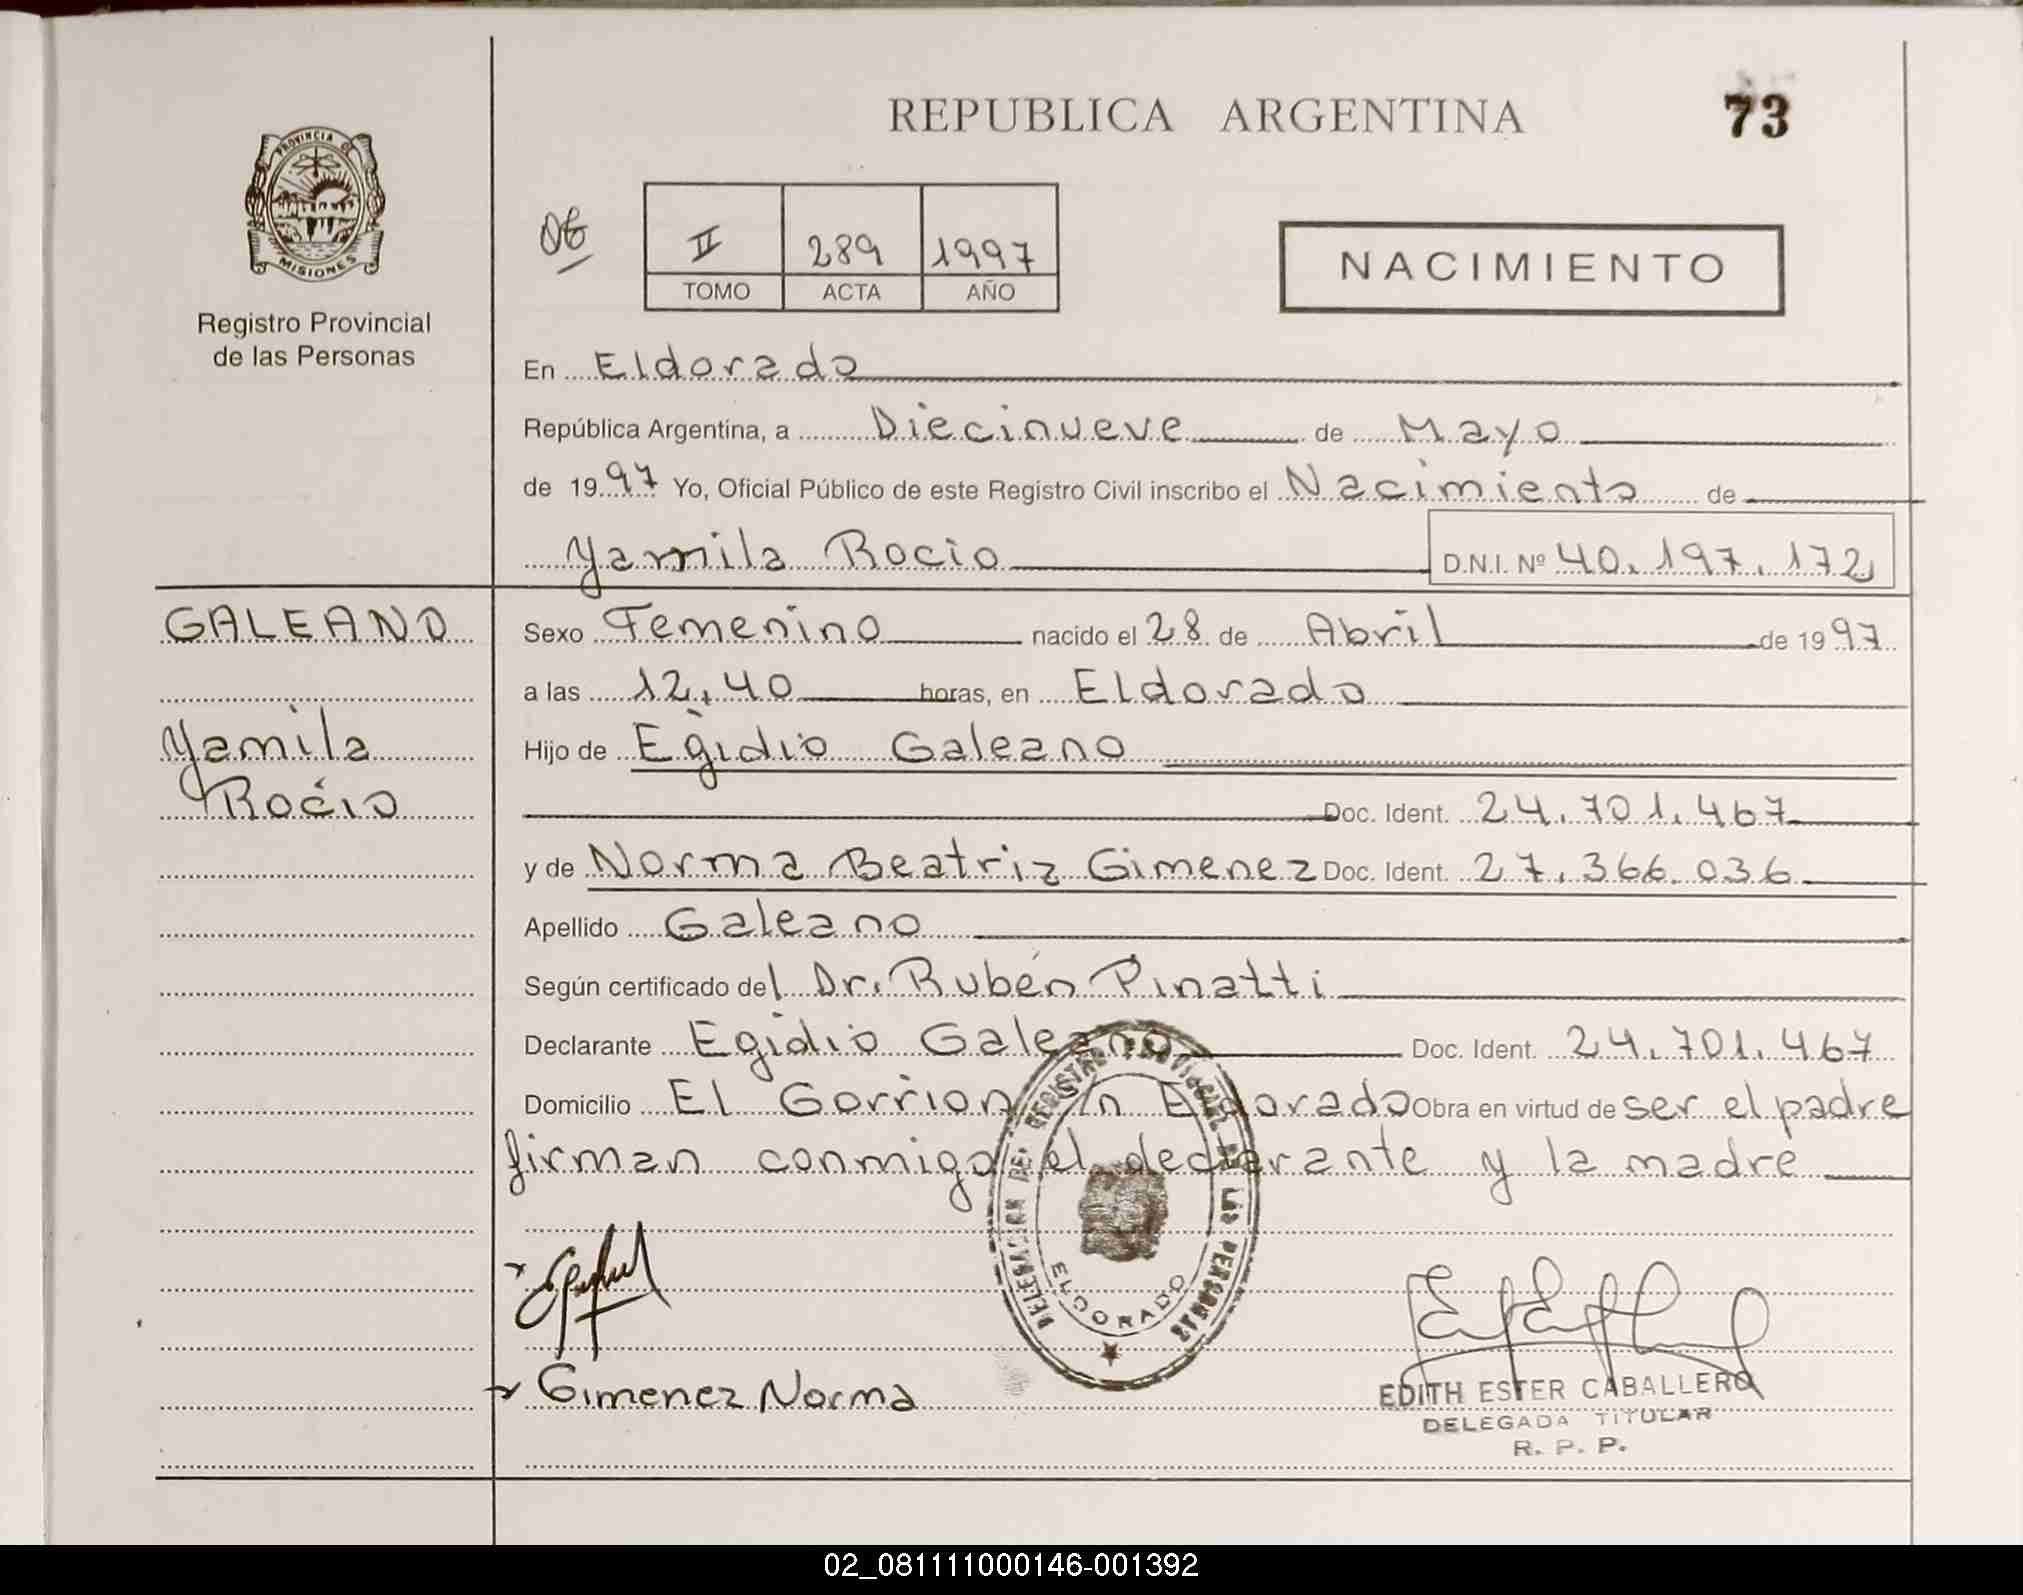 REPUBLICA ARGENTINA
73
PROVINCIA DE
MISIONES
Registro Provincial
de las Personas
06
II 289 1997
TOMO ACTA AÑO
NACIMIENTO
En Eldorado
República Argentina, a Diecinueve de Mayo
de 1997 Yo, Oficial Público de este Registro Civil inscribo el Nacimiento de
Yamila Rocio D.N.I. Nº 40.197.172
GALEANO
Yamila
Rocio
Sexo Femenino nacido el 28 de Abril de 1997
a las 12,40 horas, en Eldorado
Hijo de Egidio Galeano
Doc. Ident. 24.701.467
y de Norma Beatriz Gimenez Doc. Ident. 27.366.036
Apellido Galeano
Según certificado del Dr. Rubén Pinatti
Declarante Egidio Galeano Doc. Ident. 24.701.467
Domicilio El Gorrion s/n Eldorado Obra en virtud de ser el padre
firman conmigo el declarante y la madre
DELEGACION DEL REGISTRO PROVINCIAL DE LAS PERSONAS
ELDORADO
Gimenez Norma
EDITH ESTER CABALLERO
DELEGADA TITULAR
R. P. P.
02_081111000146-001392